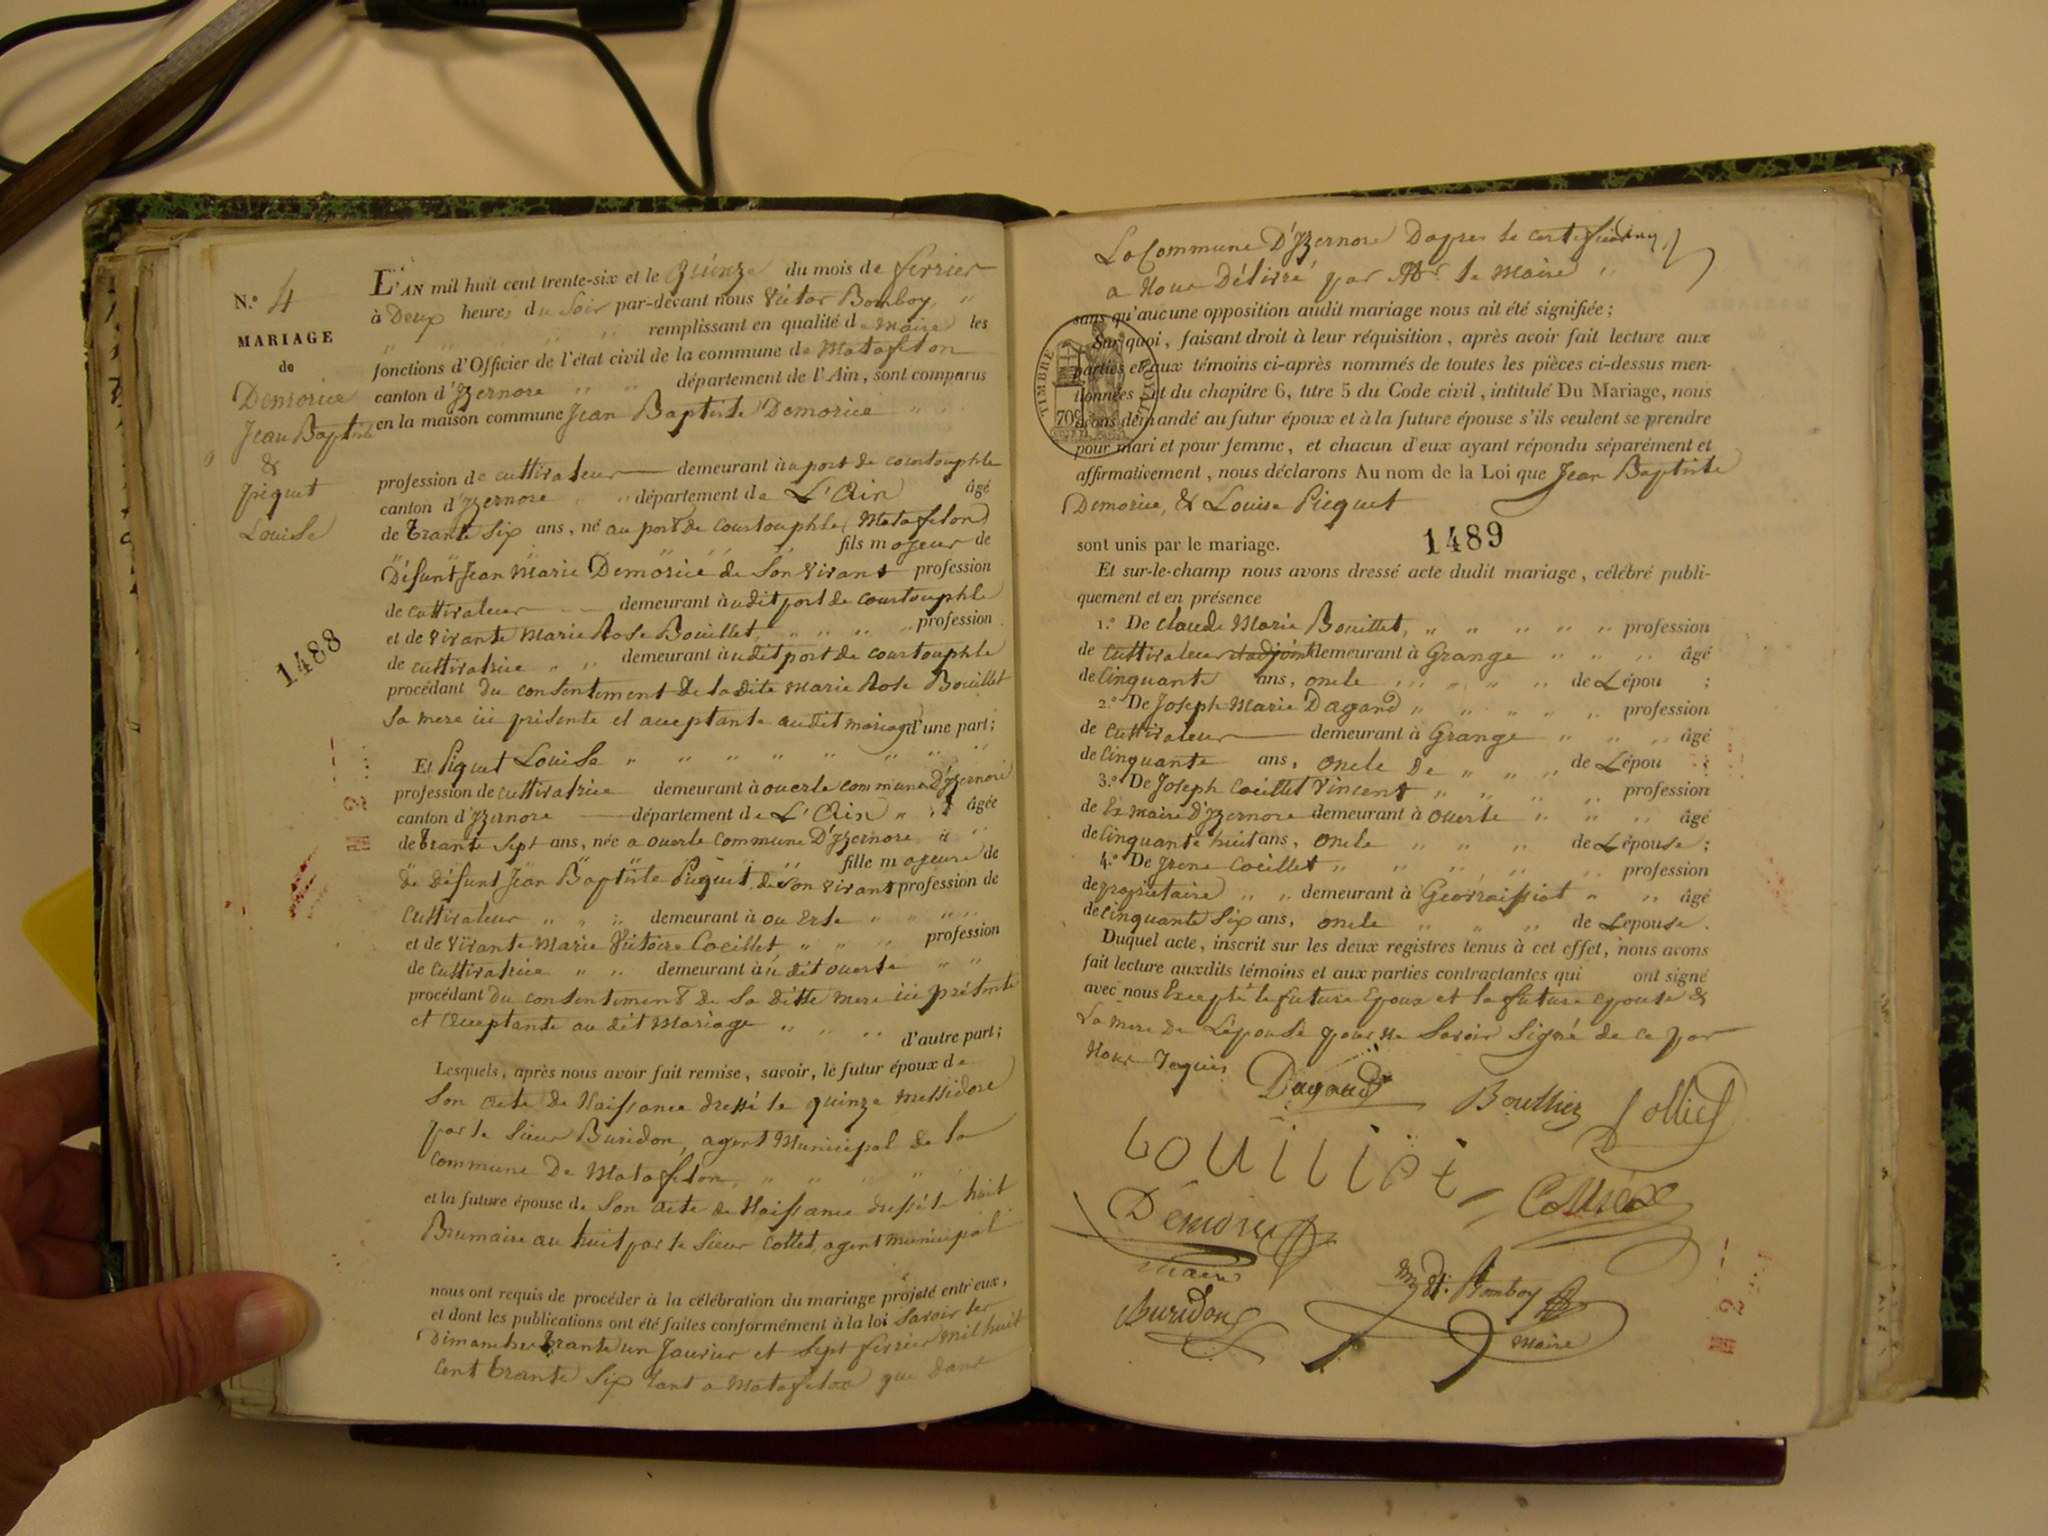 N.° 4
MARIAGE
de
Demorice
Jean Baptiste
&
Piquet
Louise
1488
L'AN mil huit cent trente-six et le Quinze du mois de ferrier
à Deux heures du Soir par-devant nous Victor Bomboy
remplissant en qualité de Maire les
fonctions d'Officier de l'état civil de la commune de Matafelon
canton d'Yzernore département de l'Ain, sont comparus
en la maison commune Jean Baptiste Demorice
profession de cultivateur demeurant à u port de courtouphle
canton d'Yzernore département de L'Ain âgé
de trante Six ans, né au port de courtouphle, Matafelon
fils majeur de
Défunt Jean Marie Demorice de Son vivant profession
de cultivateur demeurant à udit port de courtouphle
et de vivante Marie Rose Bouillet, profession
de cultivatrice demeurant à udit port de courtouphle
procédant du consentement de la dite Marie Rose Bouillet
Sa mere ici présente et acceptante audit mariage d'une part;
Et Piquet Louise
profession de cultivatrice demeurant à ouerte commune D'Yzernore
canton d'Yzernore département de L'Ain âgée
de trante Sept ans, née a ouerte commune D'Yzernore
fille majeure de
de défunt Jean Baptiste Picquet, de Son vivant profession de
Cultivateur demeurant à ouerte
et de vivante Marie Victoire Coeillet, profession
de Cultivatrice demeurant à u dit ouerte
procédant du consentement de Sa ditte mere ici présente
et acceptante au dit Mariage d'autre part;
Lesquels, après nous avoir fait remise, savoir, le futur époux de
Son acte de Naissance dressé le quinze messidore
par le Sieur Buridon, agent Municipal de la
commune De Matafelon,
et la future épouse de Son acte de Naissance dressé le huit
Brumaire an huit par le Sieur Collet, agent municipal
nous ont requis de procéder à la célébration du mariage projeté entr'eux,
et dont les publications ont été faites conformément à la loi Savoir les
Dimanches trante un Janvier et Sept ferrier mil huit
cent trante Six tant a Matafelon que dans
La Commune D'Yzernore D'apres le certificat
a Nous Délivré par Mr. le Maire
sans qu'aucune opposition audit mariage nous ait été signifiée;
Sur quoi, faisant droit à leur réquisition, après avoir fait lecture aux
parties et aux témoins ci-après nommés de toutes les pièces ci-dessus men-
tionnées et du chapitre 6, titre 5 du Code civil, intitulé Du Mariage, nous
avons demandé au futur époux et à la future épouse s'ils veulent se prendre
pour mari et pour femme, et chacun d'eux ayant répondu séparément et
affirmativement, nous déclarons Au nom de la Loi que Jean Baptiste
Demorice, & Louise Picquet
TIMBRE ROYAL
70c
sont unis par le mariage.
1489
Et sur-le-champ nous avons dressé acte dudit mariage, célébré publi-
quement et en présence
1.° De Claude Marie Bouillet, profession
de Cultivateur et adjoint demeurant à Grange âgé
de Cinquante ans, oncle de Lépou ;
2.° De Joseph Marie Dagand profession
de Cultivateur demeurant à Grange âgé
de Cinquante ans, oncle De de Lépou ;
3.° De Joseph Coeillet Vincent profession
de Ex Maire d'Yzernore demeurant à ouerte âgé
de Cinquante huit ans, oncle de Lépouse ;
4.° De Irene Coeillet profession
de propriétaire demeurant à Geovraissiat âgé
de cinquante Six ans, oncle de Lepouse.
Duquel acte, inscrit sur les deux registres tenus à cet effet, nous avons
fait lecture auxdits témoins et aux parties contractantes qui ont signé
avec nous Excepté le future Epoux et la future epouse &
La mere De L'épouse pour ne Savoir Signé de ce par
Nous requis
Dagand
Bouillier
Collies
Demorice
Maire
Buridon
Bomboy
Maire